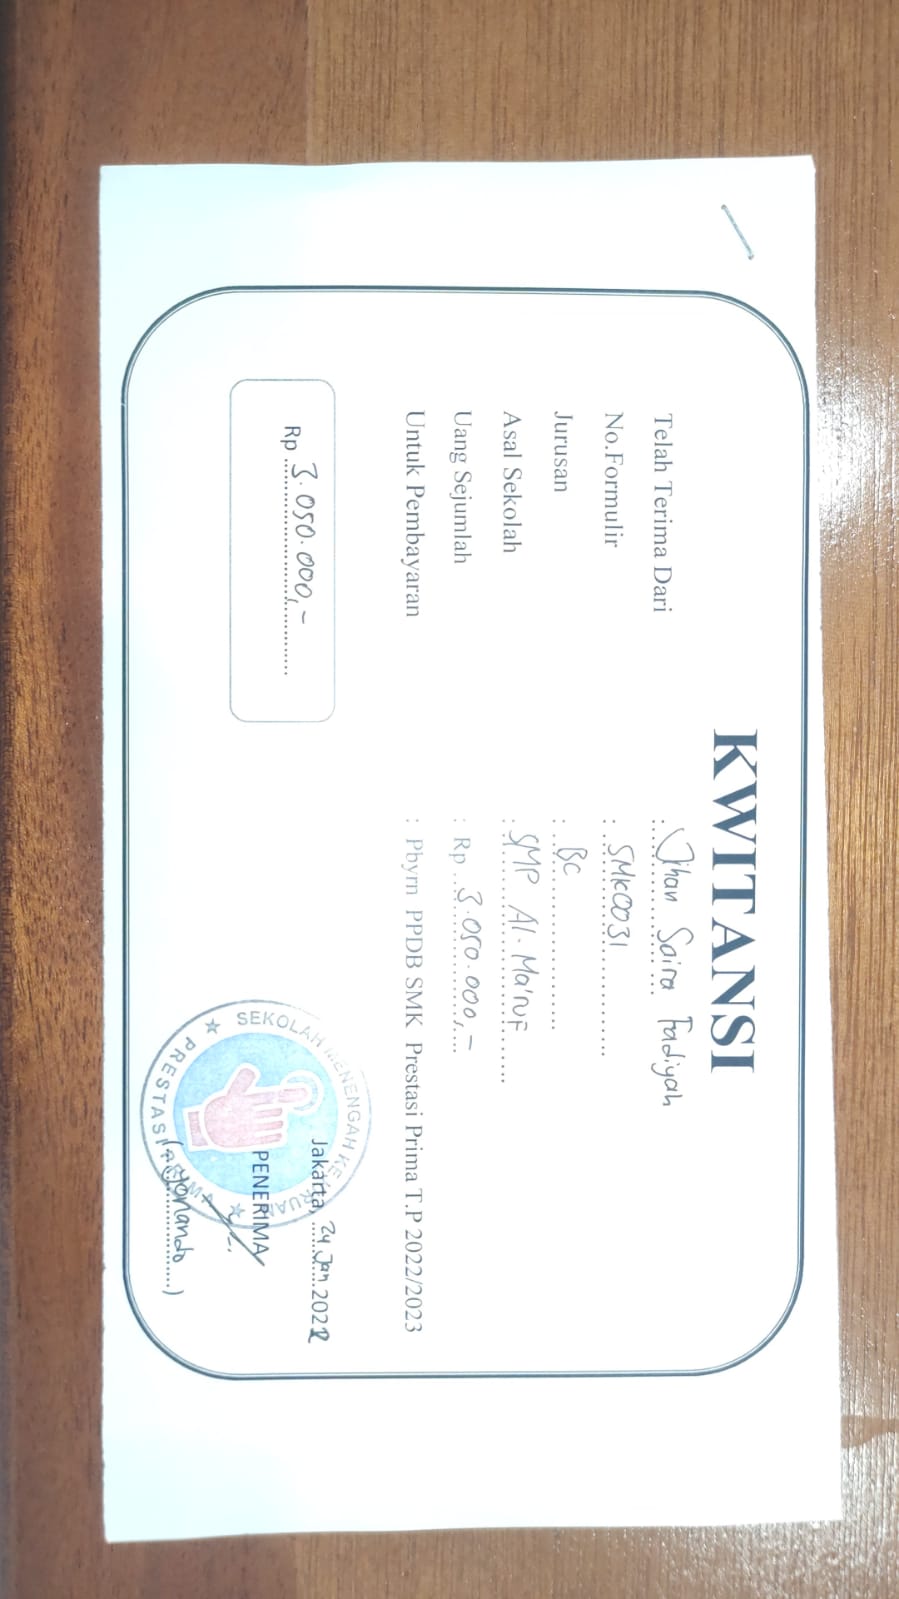 KWITANSI
Telah Terima Dari : Jihan Saira Fadiyah
No.Formulir : SMK0031
Jurusan : BC
Asal Sekolah : SMP Al-Ma'ruf
Uang Sejumlah : Rp 3.050.000,-
Untuk Pembayaran : Pbyrn PPDB SMK Prestasi Prima T.P 2022/2023
Rp 3.050.000,-
Jakarta, 24 Jan 2022
PENERIMA
(Yonando)
SEKOLAH MENENGAH KEJURUAN
PRESTASI PRIMA